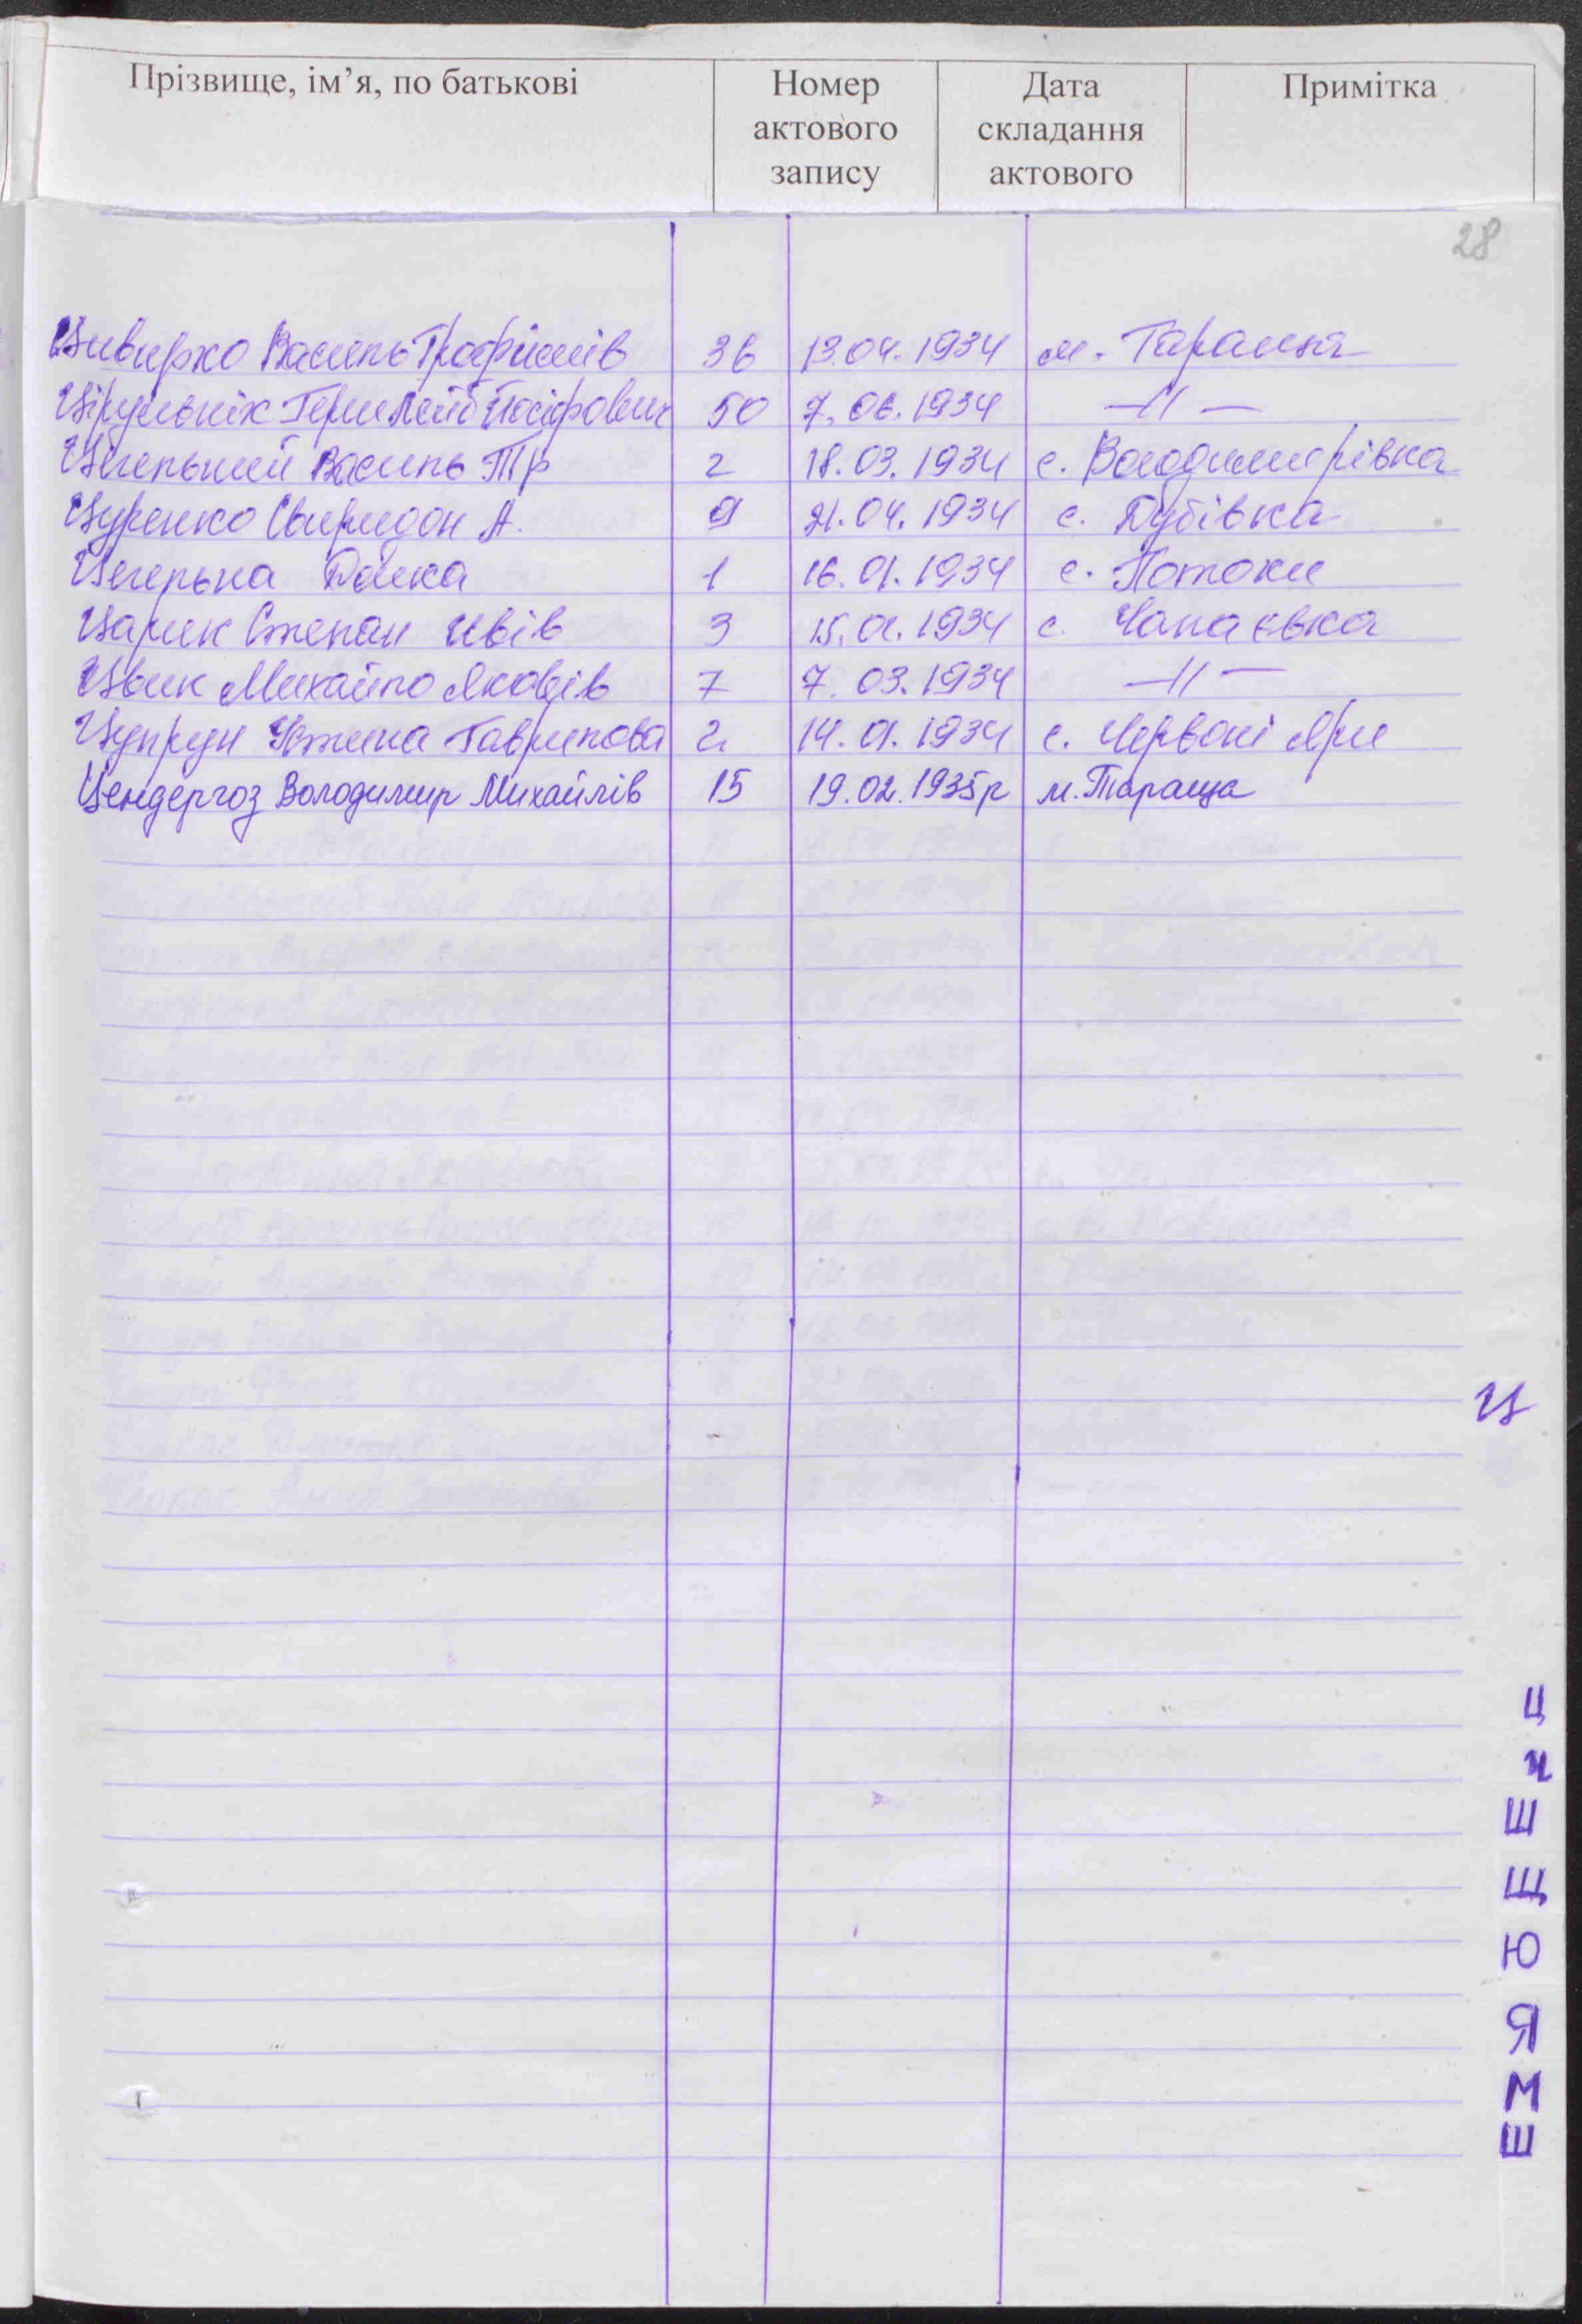 Прізвище, ім’я, по батькові Номер Дата Примітка
актового складання
запису актового
28
Цивирко Василь Трофімів 36 13.04.1934 м. Тараща
Цірульнік Герш Лейб Йосіфович 50 7.06.1934 —//—
Василь Тр 2 18.03.1934 с. Володимирівка
Цуренко Свиридон А. 9 21.04.1934 с. Дубівка
1 16.01.1934 с. Потоки
Царик Степан Ивів 3 15.01.1934 с. Чапаєвка
Цвик Михайло Яковів 7 7.03.1934 —//—
Цупрун Устина Гаврилова 2 14.01.1934 с. Червоні Яри
Цендергоз Володимир Михайлів 15 19.02.1935р м. Тараща
Ц
Ц
Ч
Ш
Щ
Ю
Я
М
Ш